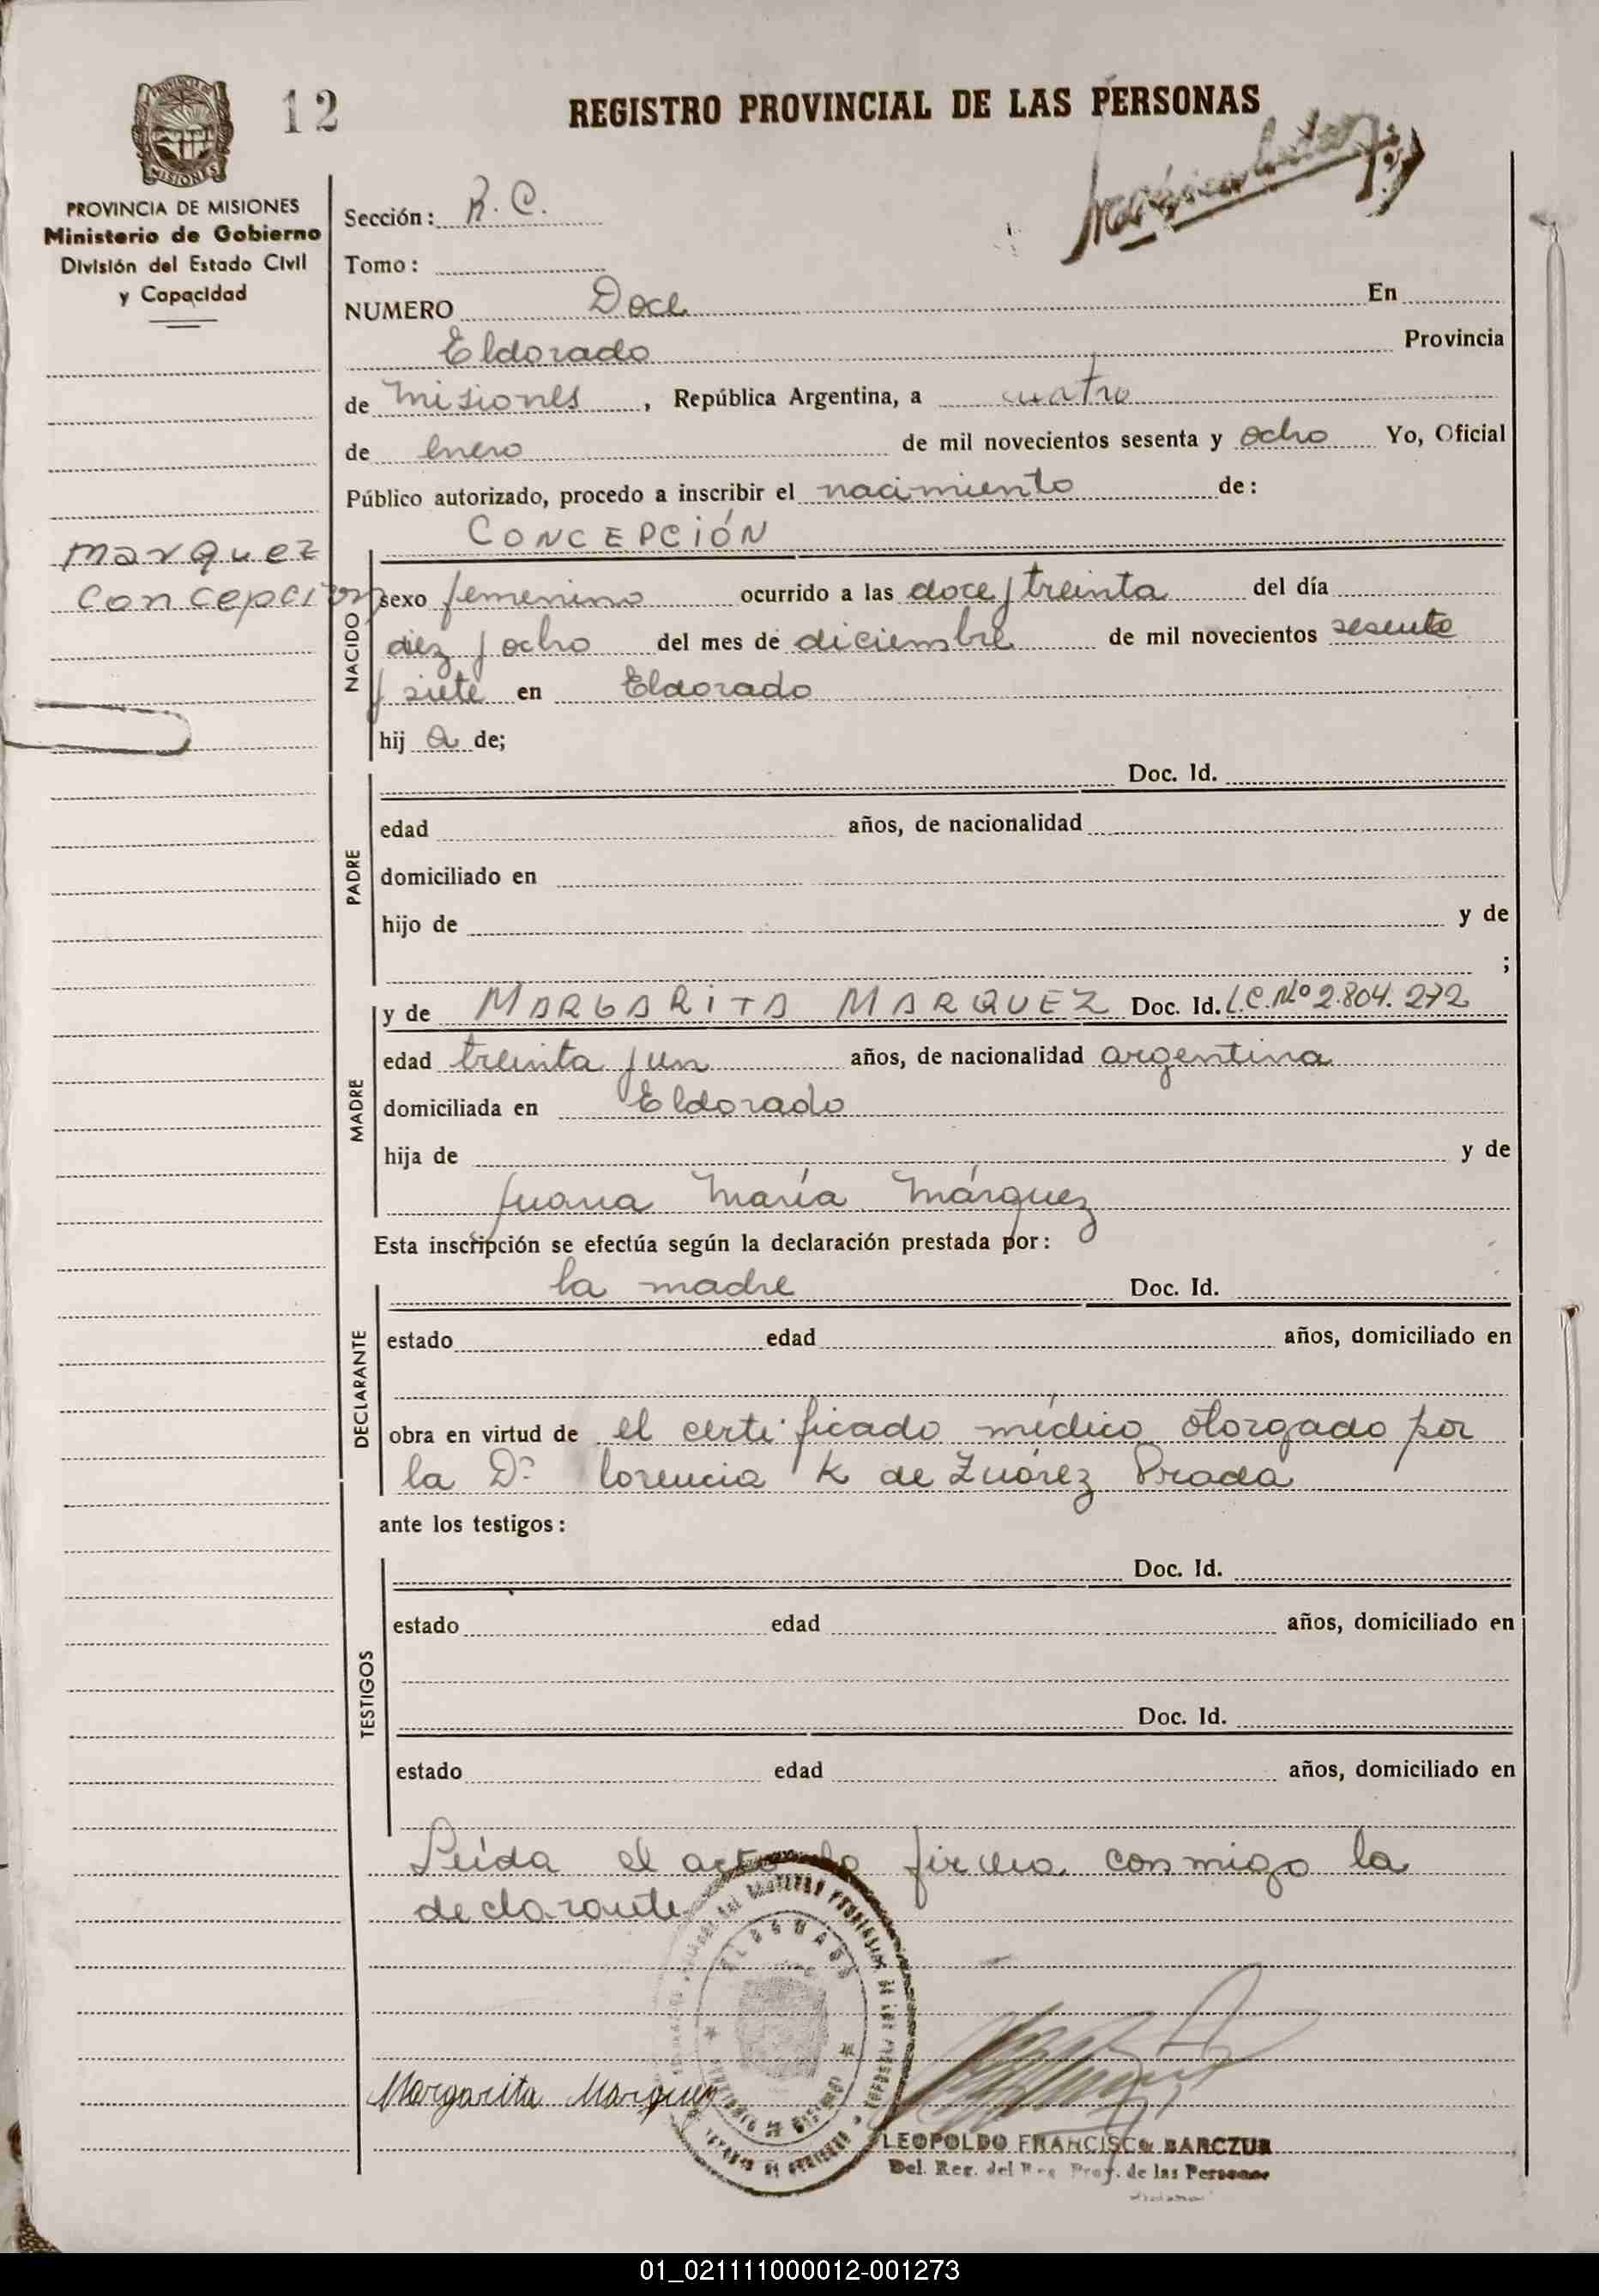 12
REGISTRO PROVINCIAL DE LAS PERSONAS
PROVINCIA DE MISIONES
Ministerio de Gobierno
División del Estado Civil
y Capacidad
Sección: R. C.
Tomo:
NUMERO Doce En
Eldorado Provincia
de Misiones, República Argentina, a cuatro
de enero de mil novecientos sesenta y ocho Yo, Oficial
Público autorizado, procedo a inscribir el nacimiento de:
CONCEPCIÓN
Marquez
Concepcion
NACIDO
sexo femenino ocurrido a las doce y treinta del día
diez y ocho del mes de diciembre de mil novecientos sesenta
y siete en Eldorado
hij a de;
PADRE
Doc. Id.
edad años, de nacionalidad
domiciliado en
hijo de y de
;
MADRE
y de MARGARITA MARQUEZ Doc. Id. L.C. Nº 2.804.272
edad treinta y un años, de nacionalidad argentina
domiciliada en Eldorado
hija de y de
Juana María Márquez
Esta inscripción se efectúa según la declaración prestada por:
DECLARANTE
la madre Doc. Id.
estado edad años, domiciliado en
obra en virtud de el certificado médico otorgado por
la Dª lorencia K de Zuárez Prada
ante los testigos:
TESTIGOS
Doc. Id.
estado edad años, domiciliado en
Doc. Id.
estado edad años, domiciliado en
Leída el acta la firma conmigo la
declarante
Margarita Marquez
LEOPOLDO FRANCISCO BARCZUK
Del. Reg. del Reg. Prov. de las Personas
01_021111000012-001273